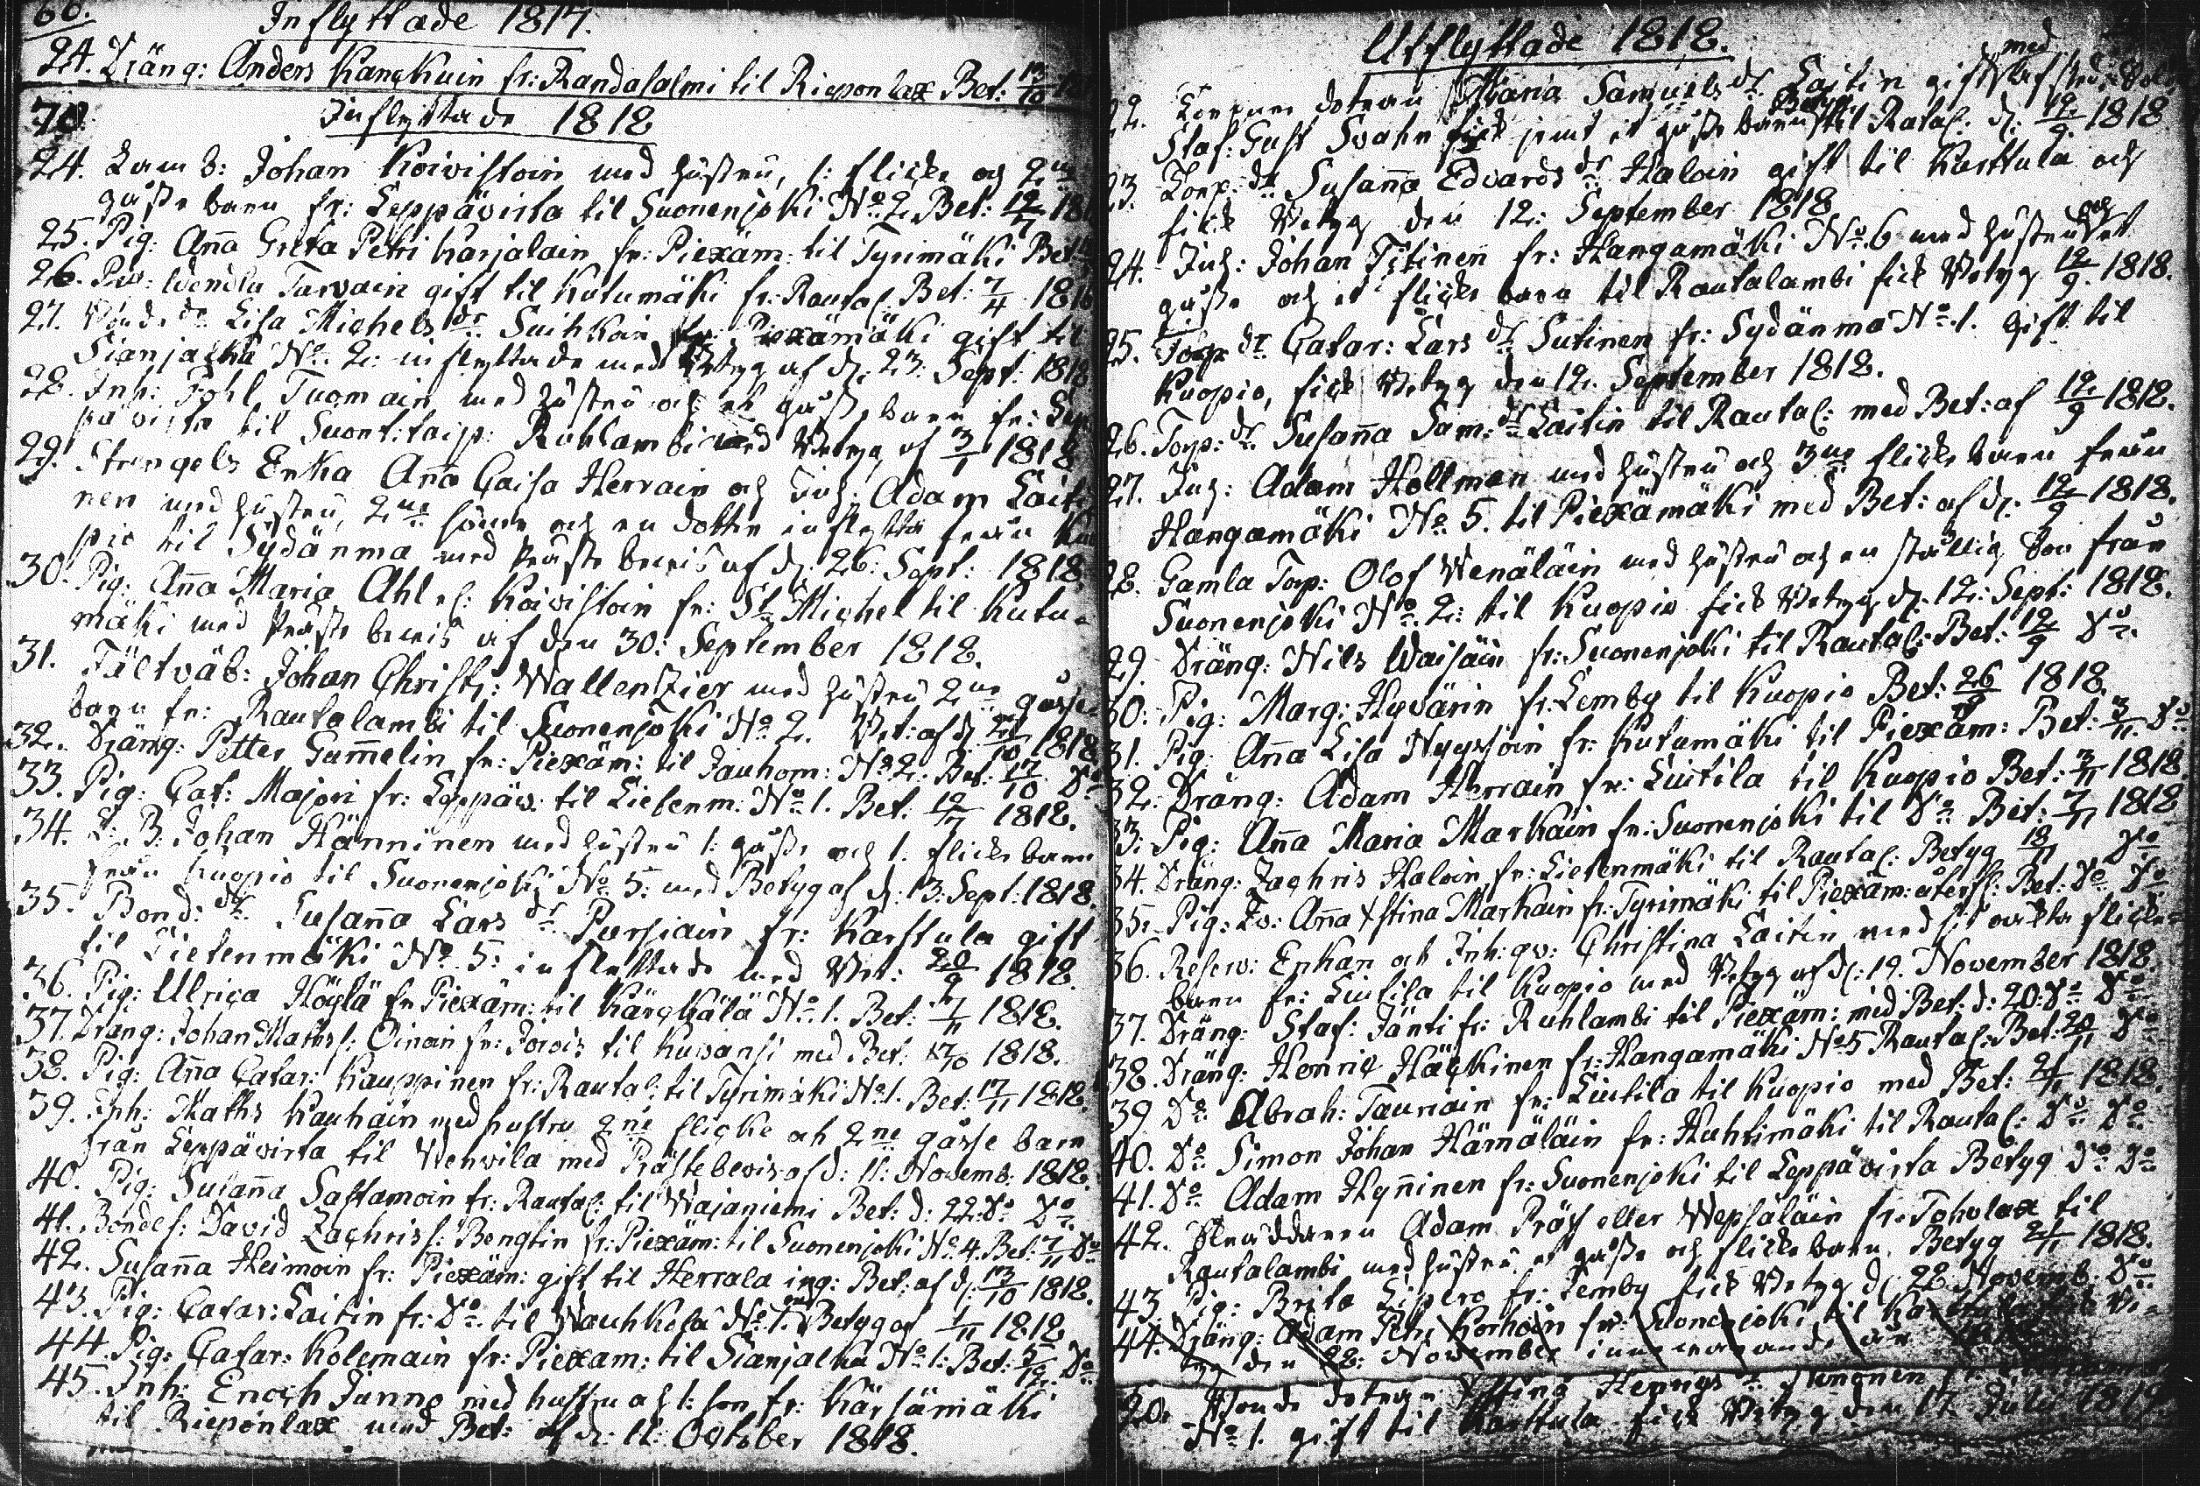 66.
Inflyttade 1817.
24. Dräng: Anders Kanckuin fr: Randasalmi til Rieponlax Bet: 13/10
70.
Inflyttade 1818
24. Lamb: Johan Koivistoin med hustru, 1: flicke och 2ne
gosse barn fr: Leppävirta til Suonenjoki No 2. Bet: 12/7 181
25. Pig: Anna Greta Petri Karjalain fr: Piexäm: til Tyrimäki Bet:
26. Pig: Wendla Tarvain gift til Kutumäki fr: Rautal: Bet: 7/4 1818
27. Bonde dr Lisa Michelsdr Suihkoin fr: Piexämäki gift til
Sianjalka No. 2: inflyttade med Betyg af d: 23: Sept: 1818
28. Inh: Pohl Tuomain med hustru och et gosse barn fr: Lep
pävirta til Suontitaip: Ruhlambi med Betyg af 3/1 1818
29. Strengels Enka Anna Caisa Herrain och Inh: Adam Laiti
nen med hustru, 2ne söner och en dotter inflytta från Kuo
pio til Sydänma med Präste bevis af d: 26: Sept: 1818.
30. Pig: Anna Maria Ahl: Koivistoin fr: St Michel til Kutu-
mäki med Präste bevis af den 30: September 1818.
31. Fältväb: Johan Christ: Wallenstier med hustru 2ne gosse
barn fr: Rautalambi til Suonenjoki No 2. Bet: af d: 24/10 1818
32. Dräng: Petter Gummelin fr: Piexäm: til Jauhom: No 2: Bet: 17/10 Do
33. Pig: Cat: Majoin fr: Leppäw: til Lietenm: No 1. Bet: 12/7 1818.
34. L: B: Johan Hänninen med hustru 1: gosse och 1. flicke barn
från Kuopio til Suonenjoki No 5: med Betyg af d: 13: Sept: 1818.
35. Bond: dr Susanna Lars dr Pursiain fr: Karstula gift
til Lietenmäki No 5: inflyttade med Bet: 20/9 1818.
36. Pig: Ulrica Höglä fr Piexäm: til Kärckälä No 1. Bet: 7/11 1818.
37. Dräng: Johan Maths: Oinoin fr: Jorois til Kuvansi med Bet: 17/10 1818.
38. Pig: Anna Catar: Kauppinen fr: Rautal: til Tyrimäki No 1. Bet: 17/11 1818.
39. Inh: Maths Kauhain med hustru 2ne flicke och 2ne gosse barn
från Leppävirta til Wenvila med Prästebevis af d: 11: Novemb: 1818.
40. Pig: Susanna Sastamoin fr: Rautal: til Wajaniemi Bet: d: 22: Do Do
41. Bondes: David Zachris: Bengtin fr: Piexäm: til Suonenjoki No 4. Bet: 7/11 Do
42. Susanna Heimoin fr: Piexäm: gift til Herrala ing: Bet: af d: 13/10 1818.
43. Pig: Catar: Laitin fr: Do til Wauhkola No 1. Betyg af 1/11 1818
44. Pig: Catar: Kolemain fr: Piexam: til Sianjalka No 1: Bet: 5/12 Do
45. Inh: Enoch Junno med hustru och 1: son fr: Kärsämäki
til Rieponlax med Bet: af d: 11: October 1818.
Utflyttade 1818.
22. dotran Maria Samuelsdr Laitin gift med
Staf: Gust Svahn fick jemt et gosse barn Betyg til Rautal: d: 12/9. 1818
23. Torp: dr Susanna Edvardsdr Haloin gift til Karttula och
fick Betyg den 12: September 1818
24. Inh: Johan Titinen fr: Hangamäki No 6 med hustru och et
gosse och et flicke barn til Rautalambi fick Betyg 12/9. 1818.
25. Torp dr Catar: Lars dr Sutinen fr: Sydänma No 1. gift til
Kuopio, fick Betyg den 12. September 1818.
26. Torp: dr Susanna Sam: dr Laitin til Rautal: med Bet: af 12/9 1818.
27. Inh: Adam Hollman med hustru och 3ne flicke barn från
Hangamäki No 5. til Piexämäki med Bet: af d: 12/9 1818.
28. Gamla Torp: Olof Wenäläin med hustru och en son från
Suonenjoki No 2: til Kuopio fick Betyg d: 12: Sept: 1818.
29. Dräng: Nils Waisäin fr: Suonenjoki til Rautal: Bet: 12/9 Do
30: Pig: Marg: Hyvärin fr: Lemby til Kuopio Bet: 26/9 1818.
31. Pig: Anna Lisa Nyyssöin fr: Kutumäki til Piexäm: Bet: 3/11. Do
32: Dräng: Adam Herrain fr: Liutila til Kuopio Bet: 3/11 1818.
33: Pig: Anna Maria Markain fr: Suonenjoki til Do Bet: 7/11 1818
34. Dräng: Zachris Haloin fr: Lietenmäki til Rautal: Betyg 18/11 Do
35. Pig: Anna Stina Markain fr: Tyrimäki til Piexäm: Bet: Do Do
36. Reserv: Enkan och Inh: qv: Christina Laitin med sit oäkta flicke-
barn fr: Liutila til Kuopio med Betyg af d: 19. November 1818.
37. Dräng: Staf: Jänti fr: Ruhlambi til Piexäm: med Bet: d: 20: Do Do
38. Dräng: Henric Häckinen fr: Hangamäki No 5 Rautal: Bet: 20/11 Do
39. Do: Abrah: Tauriain fr: Liutila til Kuopio med Bet: 21/11 1818.
40. Do: Simon Johan Hämäläin fr: Huhtimäki til Rautal: Do Do
41. Do Adam Hynninen fr: Suonenjoki til Leppävirta Betyg Do Do
42. Skraddaren Adam Präst eller Wepsäläin fr: Toholax til
Rautalambi med hustru et gosse och flicke barn. Betyg 21/11 1818.
43. Pig: Brita Lipero fr: Lemby fick Betyg d: 28 Novemb: Do
44. Dräng: Adam Petr: Korhoin fr: Suonenjoki til Karttula fick Be-
tyg den 28: November innevarande år
20. Bonde dotran Stina Henrgs dr
No 1. gift til Karttula fick Betyg den 17 Julii 1819.